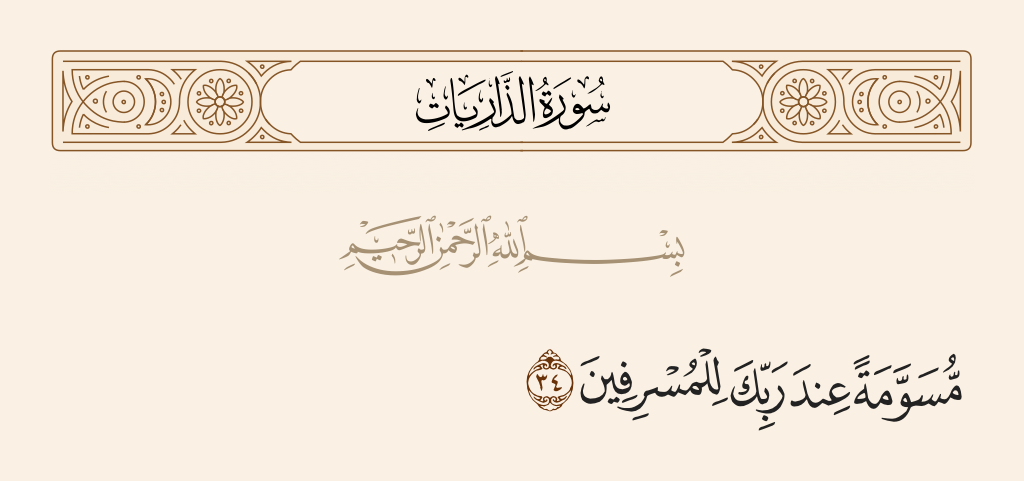 سُورَةُ الذَّارِيَاتِ
بِسْمِ ٱللَّهِ ٱلرَّحْمَٰنِ ٱلرَّحِيمِ
مُّسَوَّمَةً عِندَ رَبِّكَ لِلْمُسْرِفِينَ ٣٤